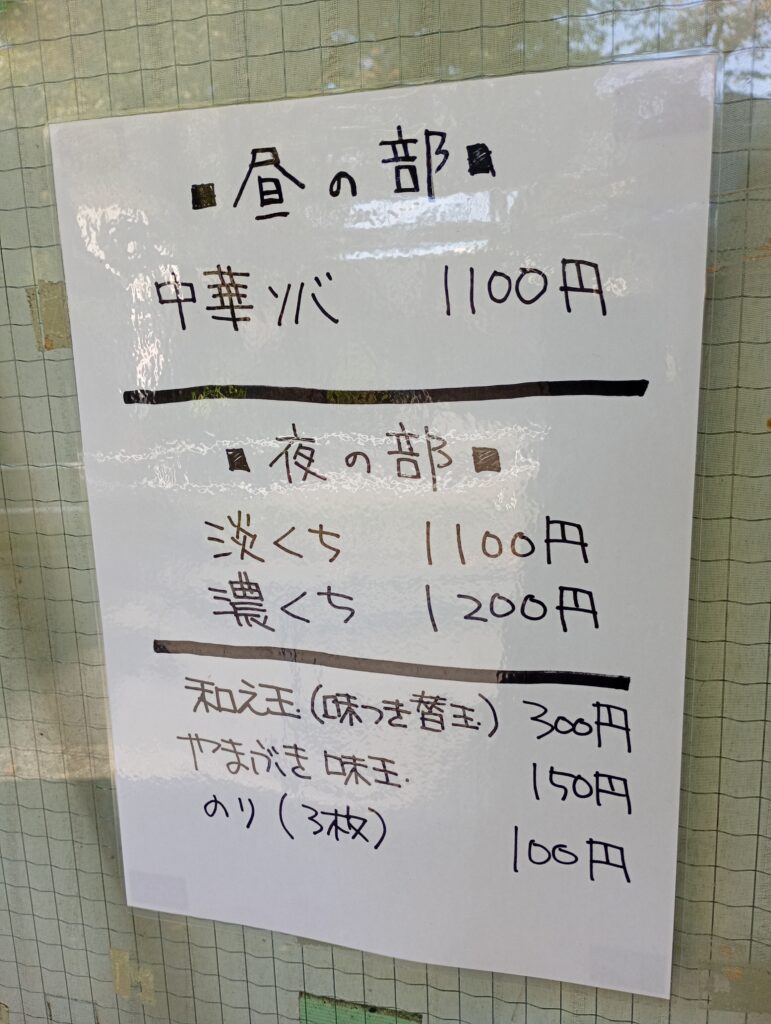 ■昼の部■
中華ソバ 1100円
■夜の部■
淡くち 1100円
濃くち 1200円
和え玉(味つき替玉) 300円
やまぶき味玉 150円
のり(3枚) 100円